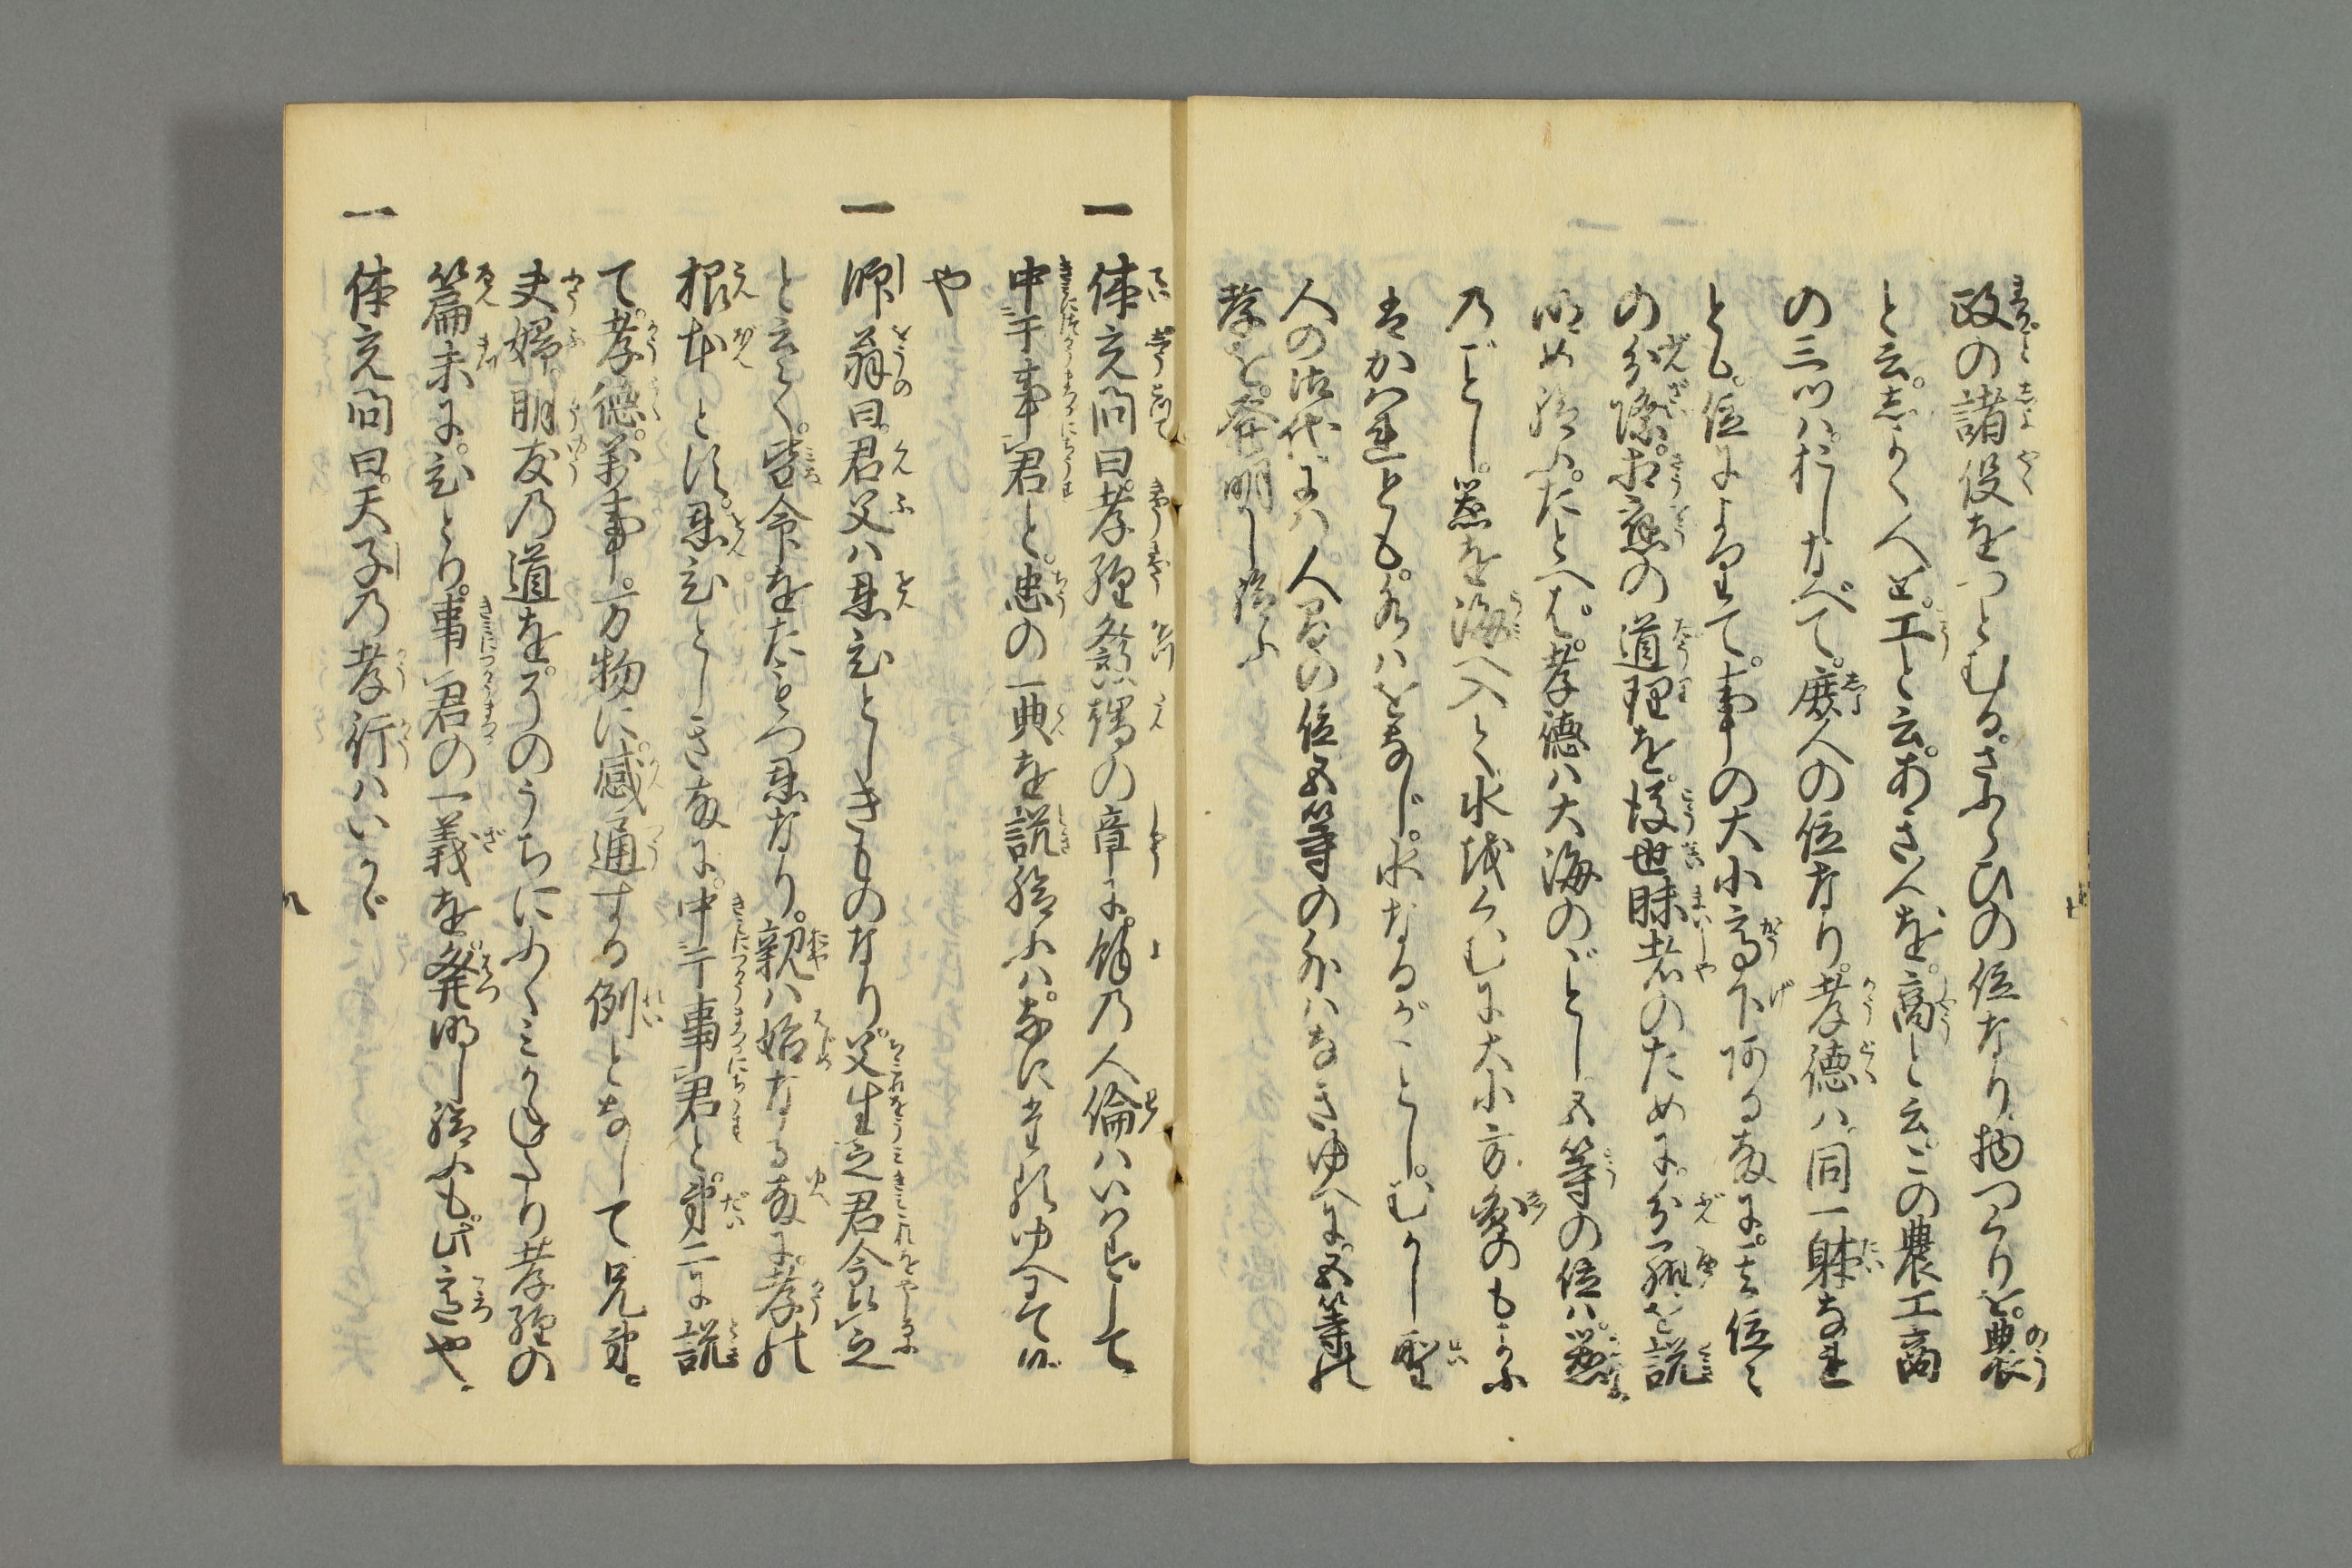 政の諸役をつとむる。さふらひの位なり。物つくりを。農
と云。あきなひ人を。商と云。この農工商
の三つハ。おしなべて。庶人の位なり。孝徳ハ。同一躰なれ
とも。位によりて。事の大小高下ある故に。其位々
の分際。相應の道理を。後世昧者のために。分説
明め給ふ。たとへば。孝徳ハ大海のごとし。五等の位ハ。器
のごとし。器を海へ入て水をくむに。大小方円のもやうに
はかハれども。水ハをなじ。水なるがことし。むかし聖
人の御代にハ。人間の位。五等の外ハなきゆへに。五等の
孝を。発明し給ふ
一 体充問曰。孝経啓蒙の章に。餘の人倫ハいはずして
中于事君と。忠の一典を説給ふハ。なにたるゆへにて候
や
一 師翁曰。君父ハ恩ひとしきものなり。父生之君食之
と云て。皆命をたもつ恩なり。親ハ始なる故に。孝の
根本とす。恩ひとしき故に。中于事君と。第二に説
て。孝徳。萬事。万物に感通する例となして。兄弟。
夫婦。朋友の道を。そのうちにふくみかねたり。孝経の
篇末に。ひとり。事君の一義を発明し給ふも。此意也。
一 体充問曰。天子の孝行ハいかゞ